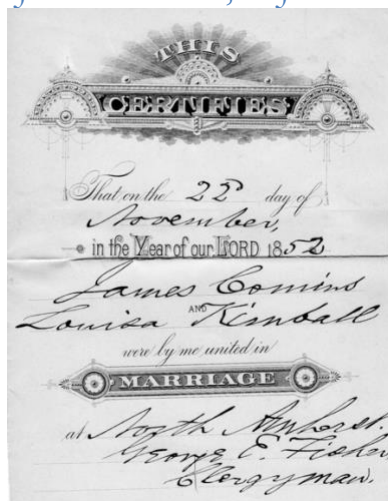 THIS
CERTIFIES
That on the 22d day of
November,
in the Year of our LORD 1852
James Comins
AND
Louisa Kimball
were by me united in
MARRIAGE
at North Amherst.
George E. Fisher
Clergyman.